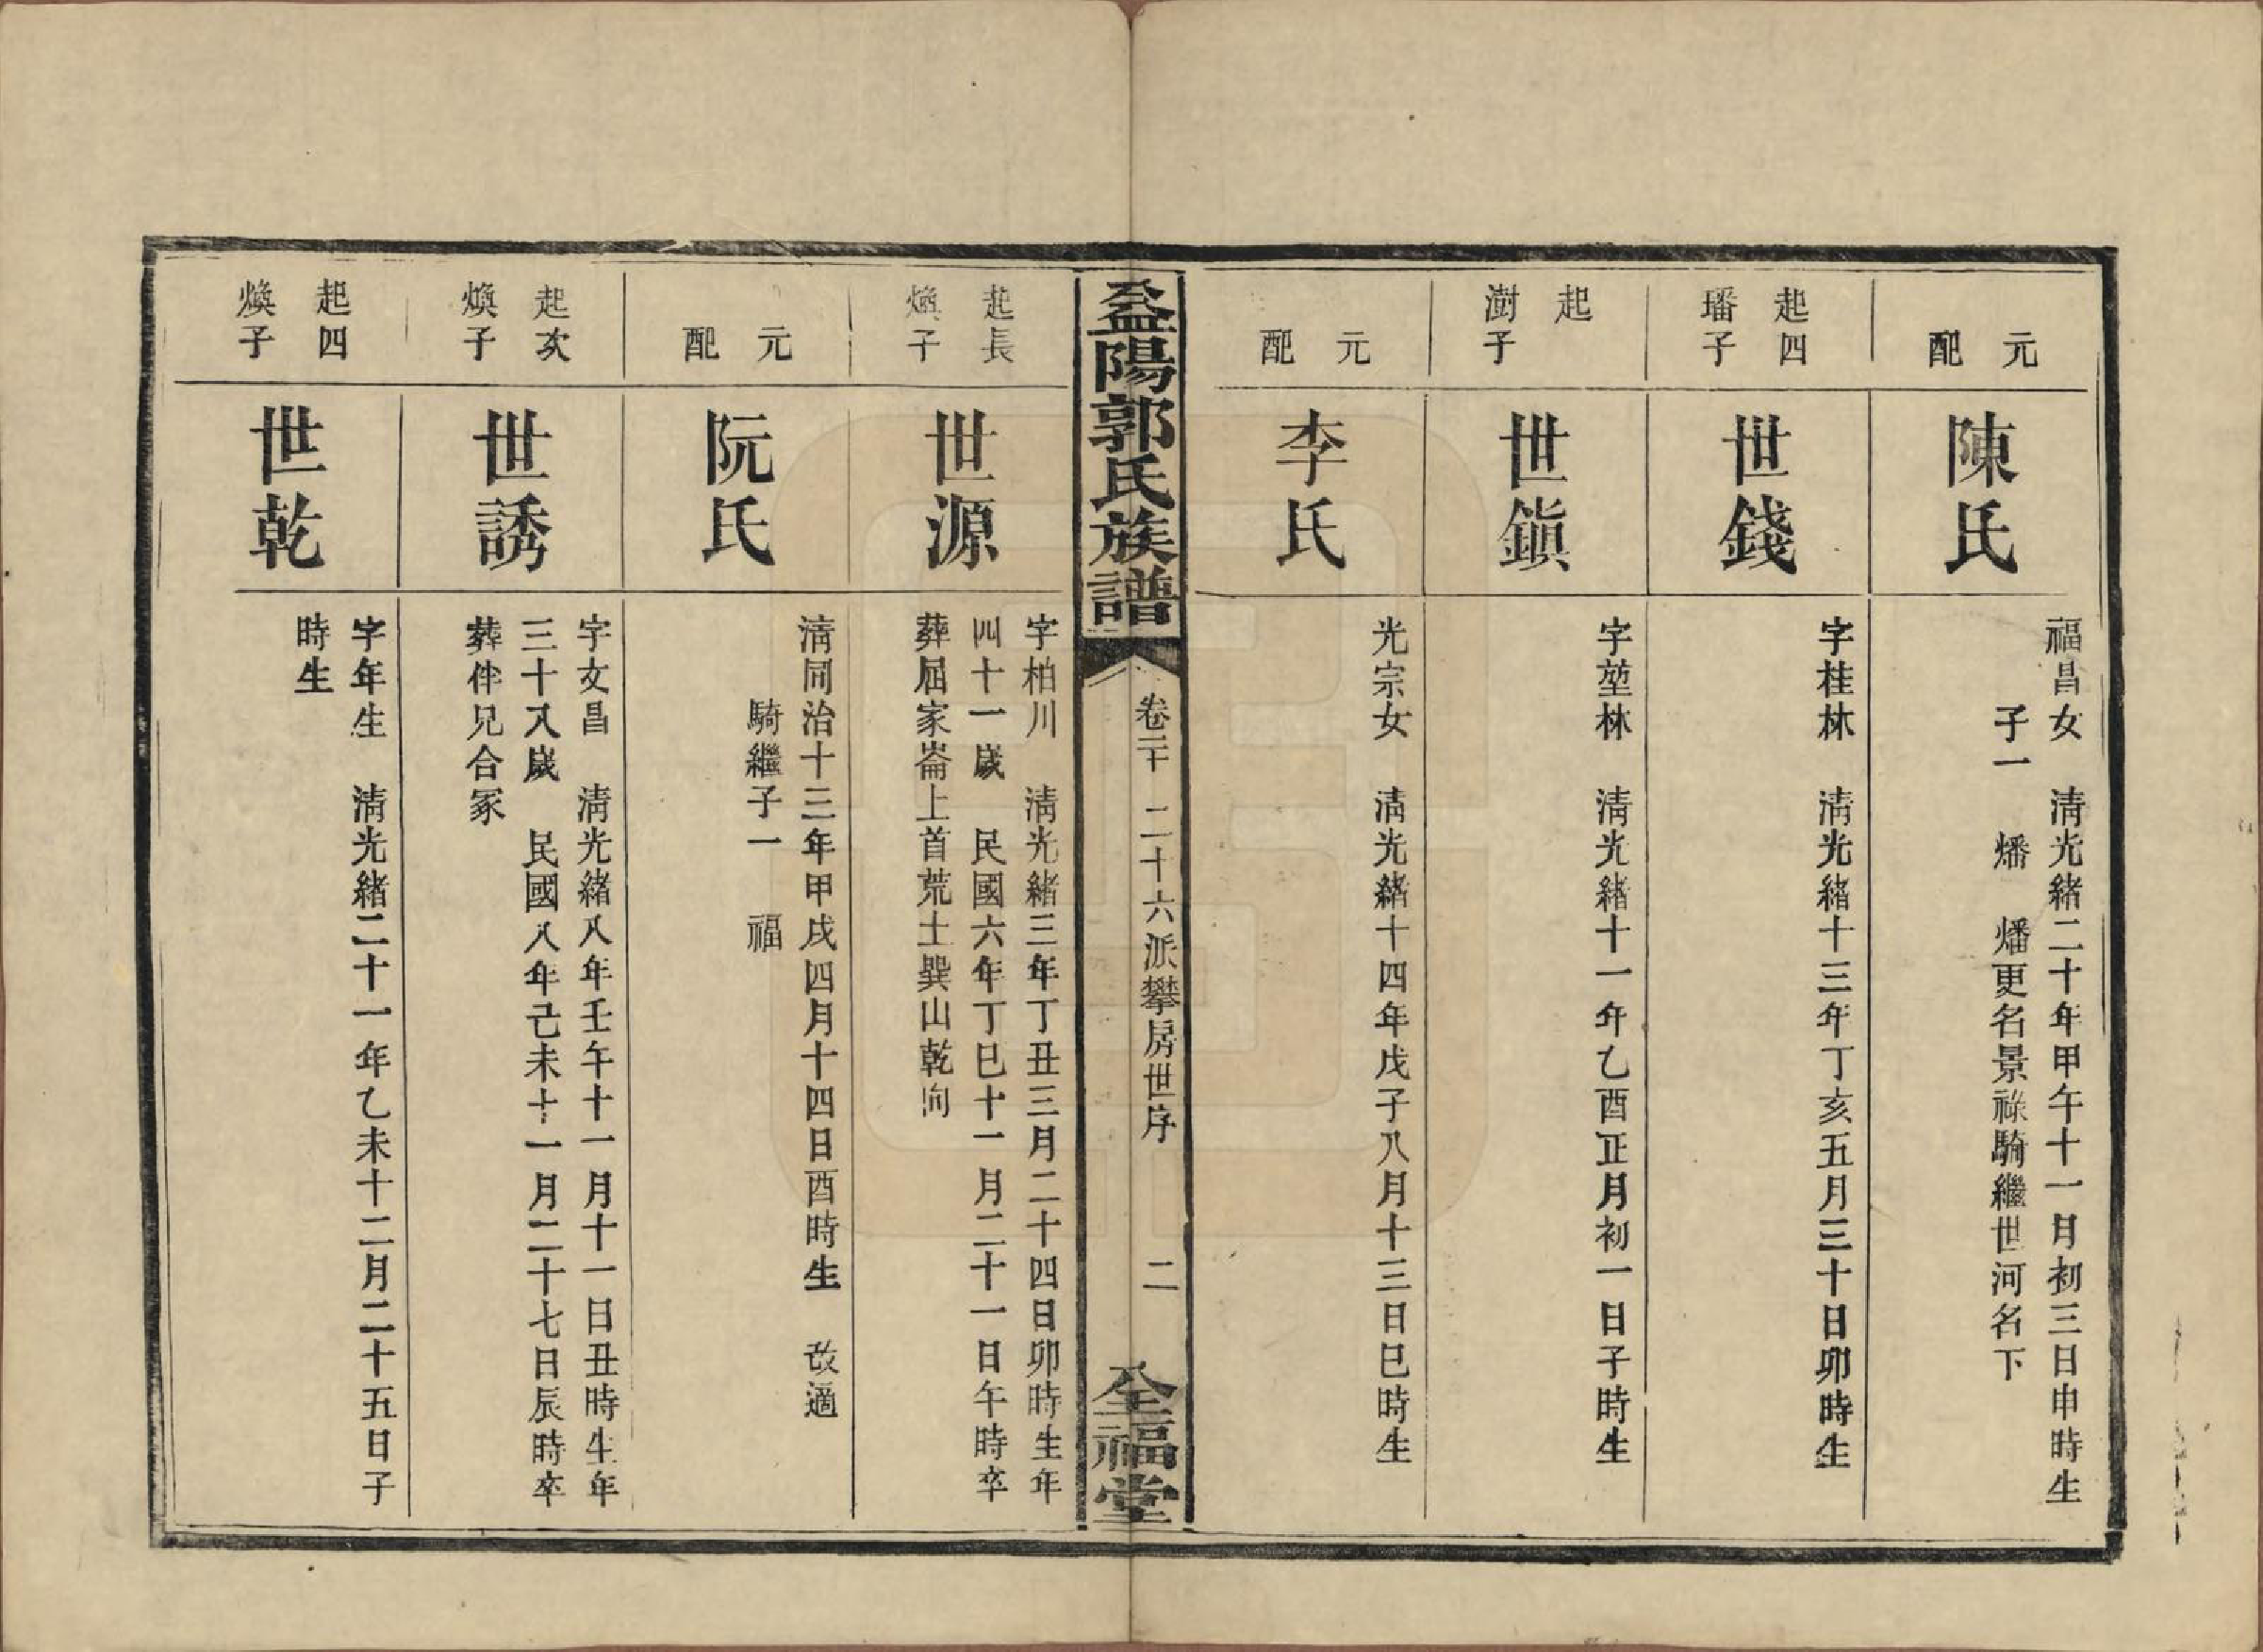 元配
陳氏
福昌女 清光緒二十年甲午十一月初三日申時生
子一 燔 燔更名景祿騎繼世河名下
起四
璠子
世錢
字桂林 清光緒十三年丁亥五月三十日卯時生
起
澍子
世鎮
字堃林 清光緒十一年乙酉正月初一日子時生
元配
李氏
光宗女 清光緒十四年戊子八月十三日巳時生
益陽郭氏族譜
卷二十 二十六派攀房世序 二
全福堂
起長
煥子
世源
字柏川 清光緒三年丁丑三月二十四日卯時生年
四十一歲 民國六年丁巳十一月二十一日午時卒
葬屈家崙上首荒土巽山乾向
元配
阮氏
清同治十三年甲戌四月十四日酉時生 改適
騎繼子一 福
起次
煥子
世誘
字文昌 清光緒八年壬午十一月十一日丑時生年
三十八歲 民國八年己未十一月二十七日辰時卒
葬伴兄合冢
起四
煥子
世乾
字年生 清光緒二十一年乙未十二月二十五日子
時生